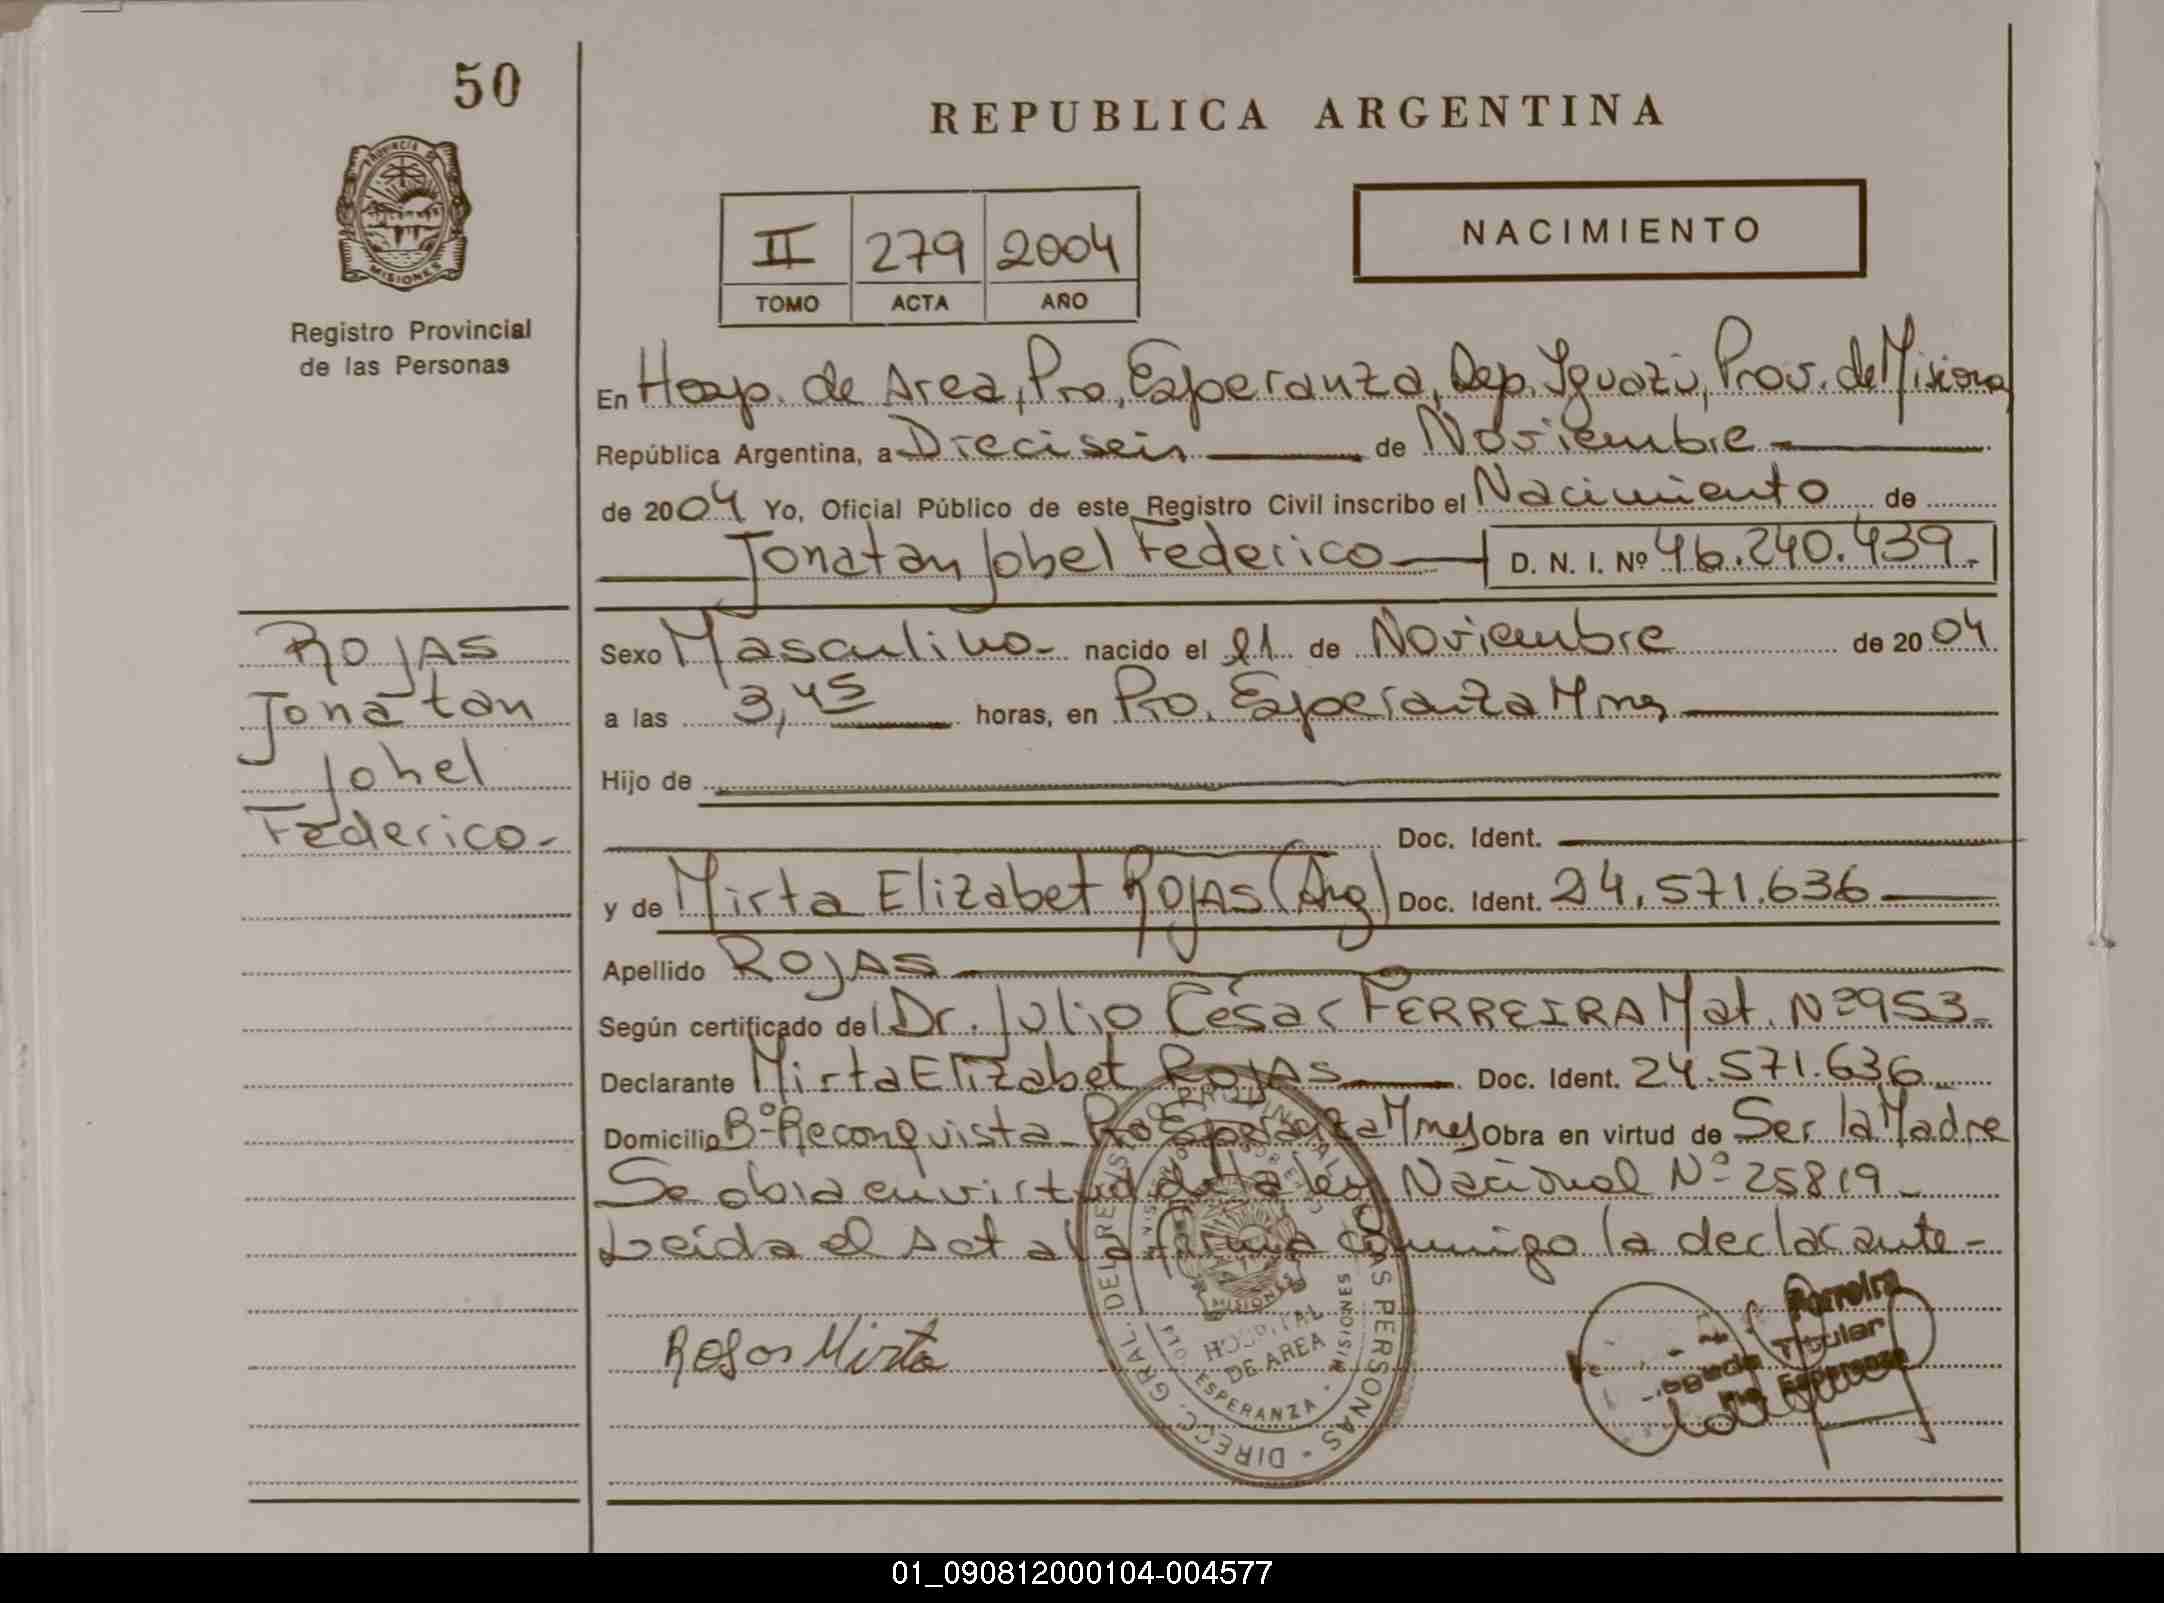 50
REPUBLICA ARGENTINA
PROVINCIA DE
MISIONES
Registro Provincial
de las Personas
II 279 2004
TOMO ACTA AÑO
NACIMIENTO
En Hosp. de Area, Pto, Esperanza, Dep. Iguazú, Prov. de Misiones
República Argentina, a Dieciseis de Noviembre
de 2004 Yo, Oficial Público de este Registro Civil inscribo el Nacimiento de
Jonatan Johel Federico D. N. I. Nº 46.240.439.-
ROJAS
Jonatan
Johel
Federico-
Sexo Masculino- nacido el 01 de Noviembre de 2004
a las 3,45 horas, en Pto. Esperanza Mnes
Hijo de
Doc. Ident.
y de Mirta Elizabet ROJAS (Arg) Doc. Ident. 24.571.636
Apellido ROJAS
Según certificado del Dr. Julio César FERREIRA Mat. Nº 953-
Declarante Mirta Elizabet ROJAS Doc. Ident. 24.571.636
Domicilio Bº Reconquista Pto Esperanza Mnes Obra en virtud de Ser la Madre
Se obra en virtud de la ley Nacional Nº 25819-
Leída el Acta la firma conmigo la declarante-
Rojas Mirta
DIRECC. GRAL. DEL REGISTRO PROVINCIAL DE LAS PERSONAS
MISIONES
HOSPITAL
DE AREA
ESPERANZA - MISIONES
Ferreira
Titular
Esperanza
01_090812000104-004577